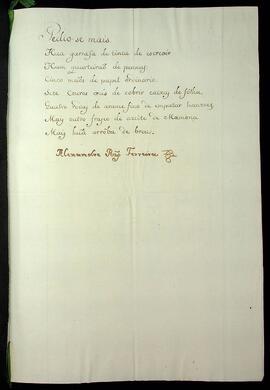 Pedio-se mais
Hua garrafa de tinta de escrever
Hum quarteirão de pennas
Cinco mãos de papel Ordinario
Sete Couros crús de cobrir caixas de folha
de arame fino de
Mais outro frasco de azeite de Mamona
Mais huã arroba de breu.
Alexandre Roiz Ferreira